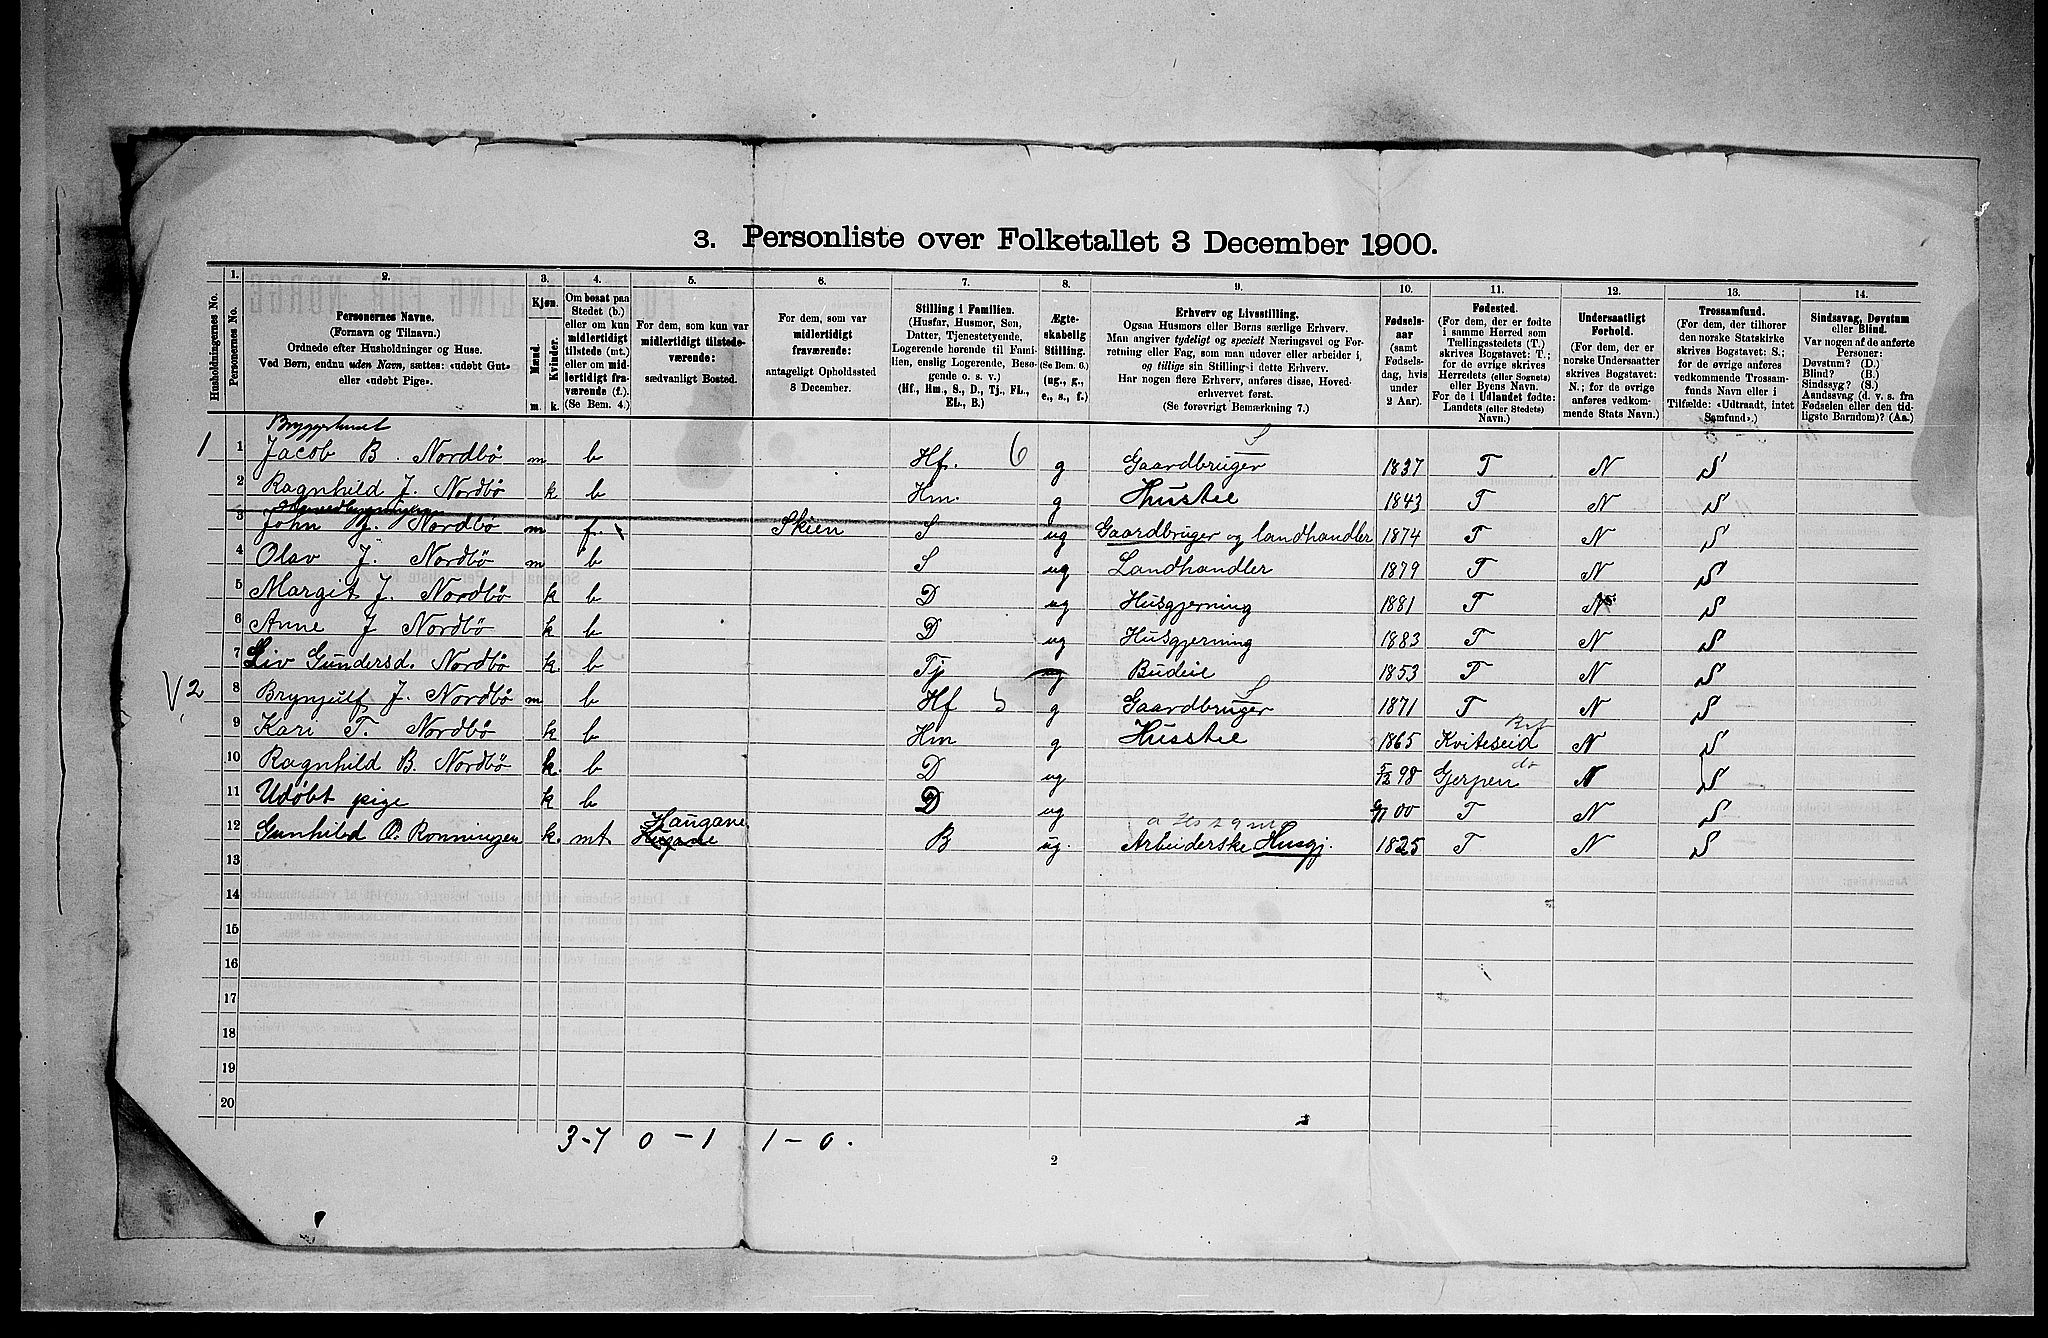 3. Personliste over Folketallet 3 December 1900.
Husholdningernes No.
1.
Personernes No.
2.
Personernes Navne.
(Fornavn og Tilnavn.)
Ordnede efter Husholdninger og Huse.
Ved Børn, endnu uden Navn, sættes: «udøbt Gut»
eller «udøbt Pige».
3.
Kjøn.
Mænd.
Kvinder.
m. k.
4.
Om bosat paa
Stedet (b.)
eller om kun
midlertidigt
tilstede (mt.)
eller om mid-
lertidigt fra-
værende (f.).
(Se Bem. 4.)
5.
For dem, som kun var
midlertidigt tilstede-
værende:
sædvanligt Bosted.
6.
For dem, som var
midlertidigt
fraværende:
antageligt Opholdssted
3 December.
7.
Stilling i Familien.
(Husfar, Husmor, Søn,
Datter, Tjenestetyende,
Logerende hørende til Fami-
lien, enslig Logerende, Besø-
gende o. s. v.)
(Hf., Hm., S., D., Tj., FL.,
EL., B.)
8.
Ægte-
skabelig
Stilling.
(Se Bem. 6.)
(ug., g.,
e., s., f.)
9.
Erhverv og Livsstilling.
Ogsaa Husmors eller Børns særlige Erhverv.
Man angiver tydeligt og specielt Næringsvei og For-
retning eller Fag, som man udøver eller arbeider i,
og tillige sin Stilling i dette Erhverv.
Har nogen flere Erhverv, anføres disse, Hoved-
erhvervet først.
(Se forøvrigt Bemærkning 7.)
10.
Fødsels-
aar
(samt
Fødsels-
dag, hvis
under
2 Aar).
11.
Fødested.
(For dem, der er fødte
i samme Herred som
Tællingsstedets (T.)
skrives Bogstavet: T.;
for de øvrige skrives
Herredets (eller Sognets)
eller Byens Navn.
For de i Udlandet fødte:
Landets (eller Stedets)
Navn.)
12.
Undersaatligt
Forhold.
(For dem, der er
norske Undersaatter
skrives Bogstavet:
N.; for de øvrige
anføres vedkom-
mende Stats Navn.)
13.
Trossamfund.
(For dem, der tilhører
den norske Statskirke
skrives Bogstavet: S.;
for de øvrige anføres
vedkommende Trossam-
funds Navn eller i
Tilfælde: «Udtraadt, intet
Samfund».)
14.
Sindssvag, Døvstum
eller Blind.
Var nogen af de anførte
Personer:
Døvstum? (D.)
Blind? (B.)
Sindssyg? (S.)
Aandssvag (d. v. s. fra
Fødselen eller den tid-
ligste Barndom)? (Aa.)
Bryggerhuset
1 1 Jacob B. Nordbö m b Hf. 6 g Gaardbruger S 1837 T N S
2 Ragnhild J. Nordbö k b Hm. g Hustee 1843 T N S
3 John J. Nordbö m f. Skien S ug Gaardbruger og landhandler 1874 T N S
4 Olav J. Nordbö m b S ug Landhandler 1879 T N S
5 Margit J. Nordbö k b D ug Husgjerning 1881 T N S
6 Anne J Nordbö k b D ug Husgjerning 1883 T N S
7 Liv Gundersd. Nordbö k. b Tj ug Budeie 1853 T N S
2 8 Brynjulf J. Nordbö m b Hf 5 g Gaardbruger S 1871 T N S
9 Kari T. Nordbö k b Hm g Husstee 1865 Kviteseid N S
10 Ragnhild B. Nordbö k. b D ug 5/12 98 Gjerpen N S
11 Udöbt pige k b D ug 00 T N S
12 Gunhild O. Ronningen k. mt Haugane B ug. Arbeiderske Husgj. 1825 T N S
13
14
15
16
17
18
19
20
3-7 0-1 1-0.
2